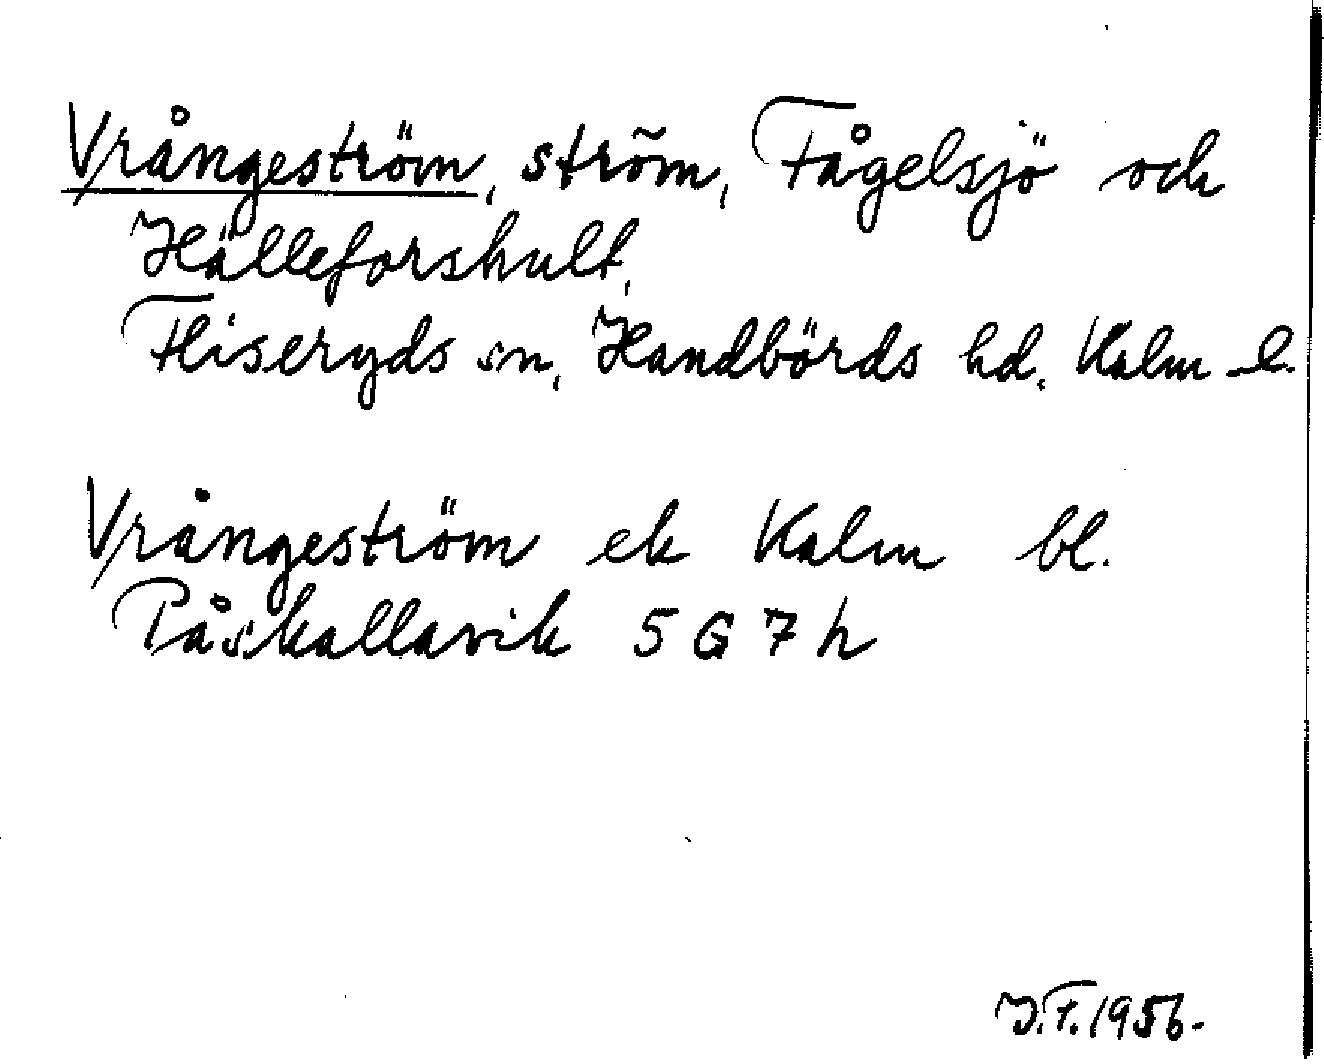 Vrångeström, ström, Fågelsjö och
Hälleforshult,
Fliseryds sn, Handbörds hd, Kalm l.
Vrångeström ek Kalm bl.
Påskallavik 5 G 7 h
J.F. 1956.